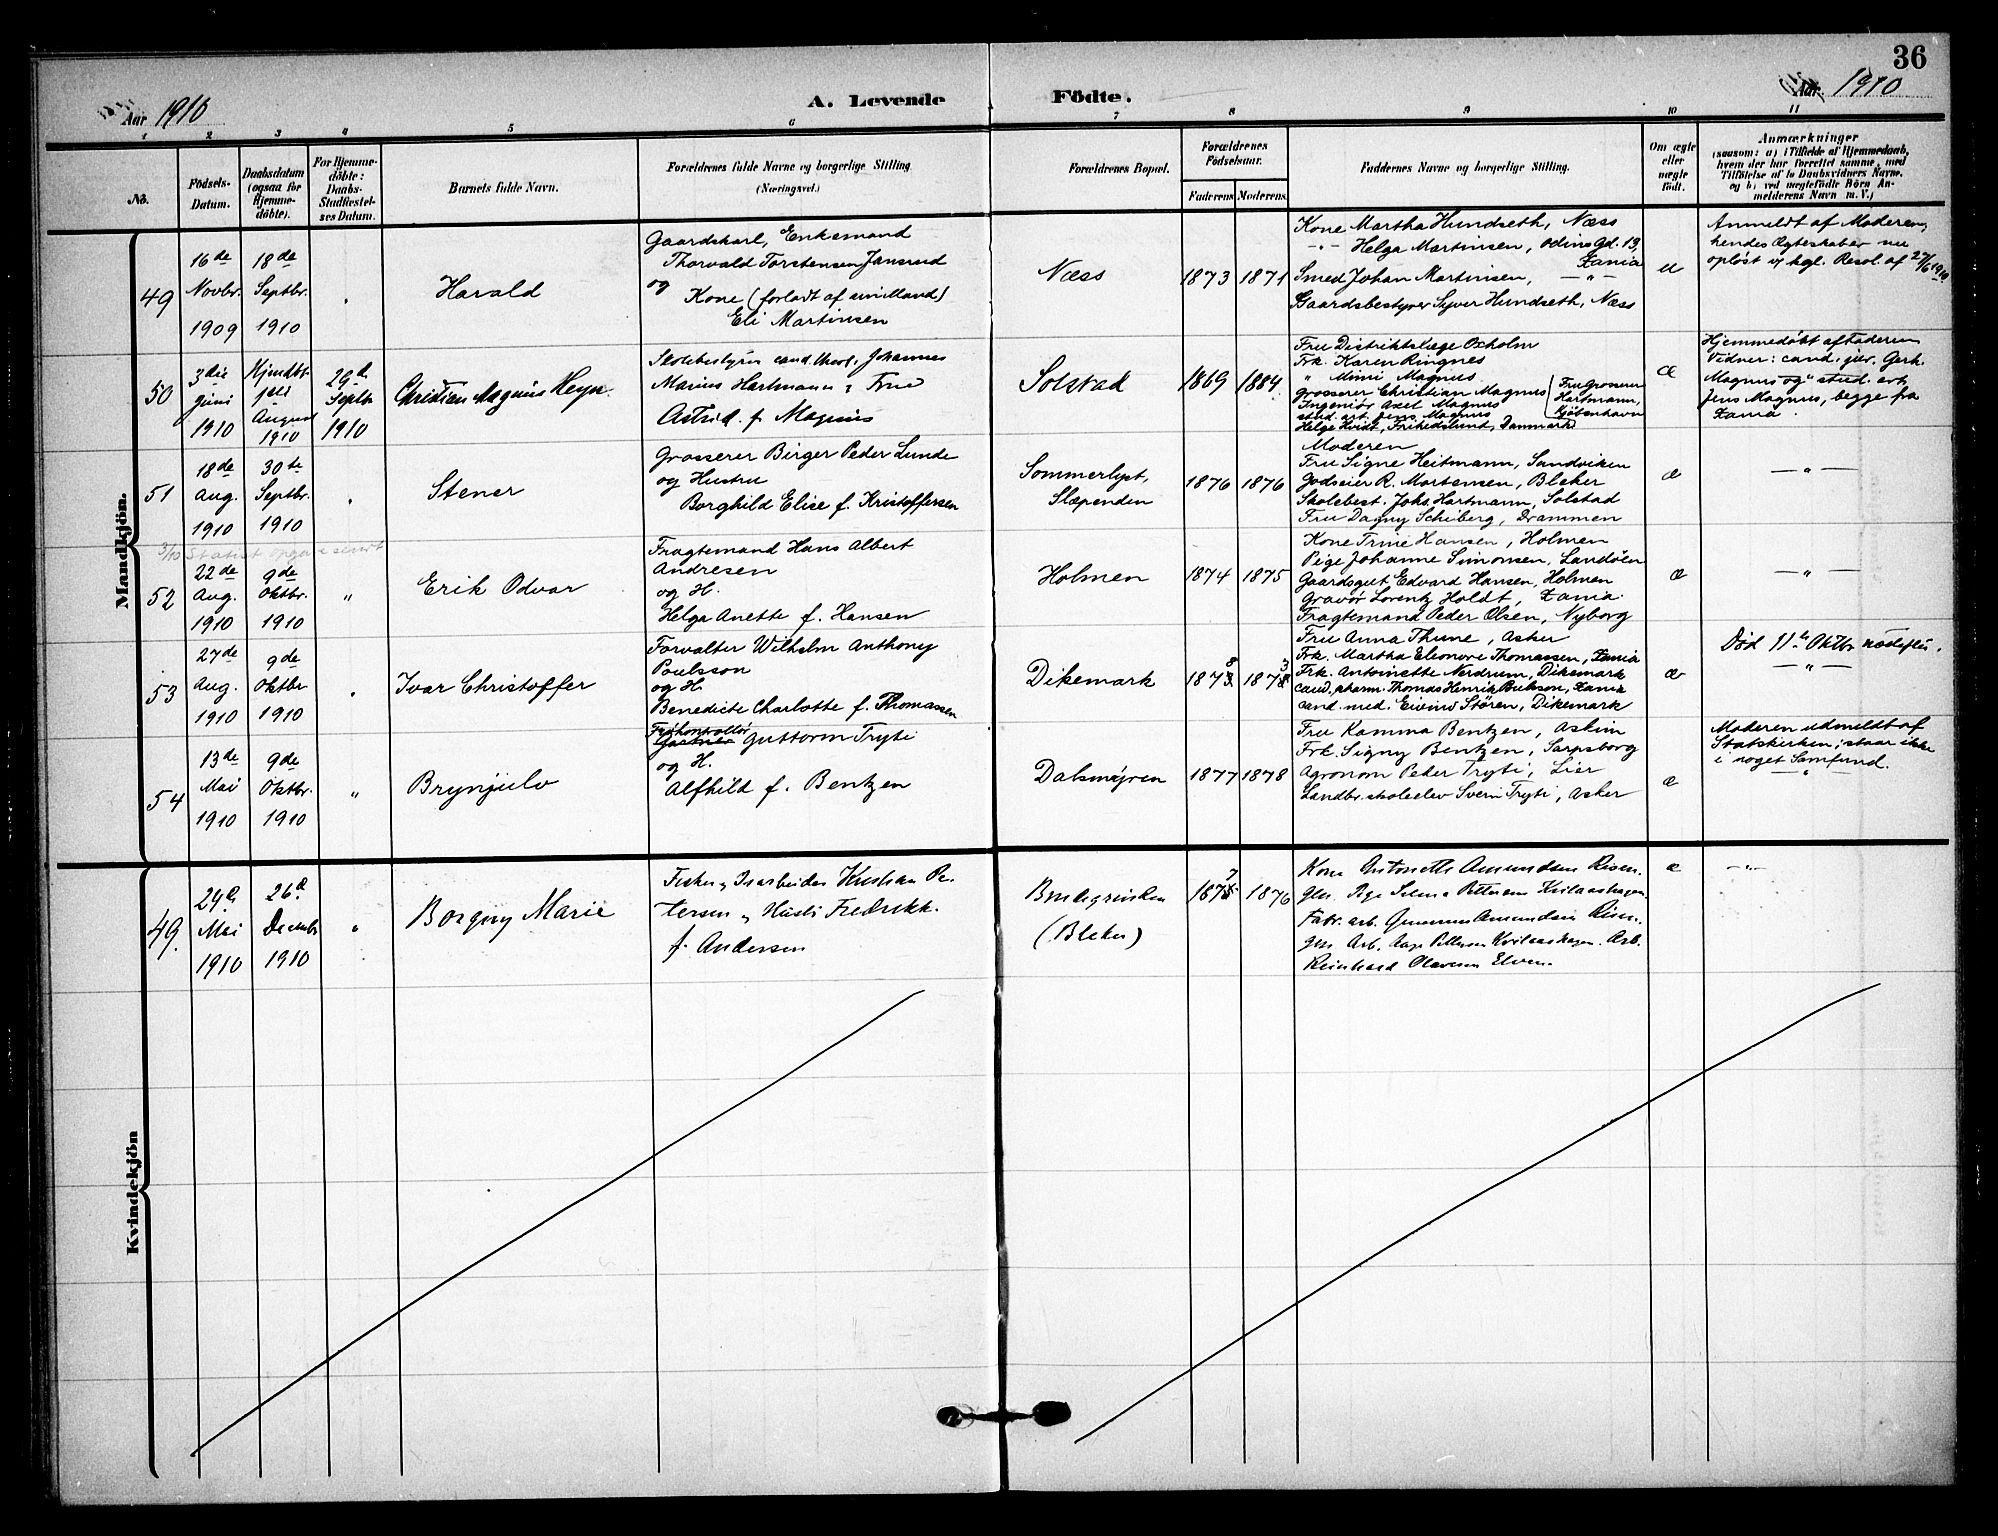 36
Aar 1910
A. Levende Födte.
Aar 1910
1 2 3 4 5 6 7 8 9 10 11
No.
Födsels-Datum.
Daabsdatum (ogsaa for Hjemme-döbte).
For Hjemme-döbte: Daabs-Stadfæstel-ses Datum.
Barnets fulde Navn.
Forældrenes fulde Navne og borgerlige Stilling.
(Næringsvei.)
Forældrenes Bopæl.
Forældrenes Födselsaar.
Faderens Moderens.
Faddernes Navne og borgerlige Stilling.
Om ægte eller uægte født.
Anmærkninger
(saasom: a) i Tilfælde af Hjemmedaab,
hvem der har forrettet samme, med
Tilföielse af to Daabsvidners Navne,
og b) ved uægtefödte Börn An-
melderens Navn m. V.)
Mandkjön.
49
16de Novbr. 1909
18de Septbr. 1910
"
Harald
Gaardskarl, Enkemand
Thorvald Torstensen Jansrud
og
Kone (forladt af sin Mand)
Eli Martinsen
Næss
1873 1871
Kone Martha Hundseth, Næss
-"- Helga Martinsen, Odins Gd. 13,
Xania
Smed Johan Martinsen, -"-
Gaardsbestyrer Syver Hundseth, Næss
u
Anmeldt af Moderen,
hendes Ægteskab er nu
opløst v/ kgl. Resol. af 27/6 1910
50
3die Juni 1910
August 1910
29de Septbr 1910
Christian Magnus Heyn.
Skolebestyrer cand. theol. Johannes
Marius Hartmann & Frue
Astrid f. Magnus
Solstad
1869 1884
Fru Distriktslæge Oxholm
Frk. Karen Ringnes
" Mimi Magnus
Grosserer Christian Magnus
Ingeniør Axel Magnus
stud. art. Jens Magnus
Helge Hvidt, Frihedslund, Danmark
Fru Grosserer Hartmann, Kjøbenhavn
æ
Hjemmedøbt af Faderen
Vidner: cand. jur. Gerh.
Magnus og stud. art.
Jens Magnus, begge fra
Xania.
51
18de Aug. 1910
30te Septbr. 1910
"
Stener
Grosserer Birger Peder Lunde
og Hustru
Borghild Elise f. Kristoffersen
Sommerlyst,
Slæpenden
1876 1876
Moderen
Fru Signe Heitmann, Sandviken
Godseier R. Mortensen, Bleker
Skolebest. Johs Hartmann, Solstad
Fru Dagny Schiberg, Drammen
æ
-"-
3/10 Statist. opgave sendt
52
22de Aug. 1910
9de Oktbr. 1910
"
Erik Odvar
Fragtemand Hans Albert
Andresen
og H.
Helga Anette f. Hansen
Holmen
1874 1875
Kone Trine Hansen, Holmen
Pige Johanne Simonsen, Landøen
Gaardsgut Edvard Hansen, Holmen
Gravør Lorentz Holdt, Xania.
Fragtemand Peder Olsen, Nyborg
æ
-"-
53
27de Aug. 1910
9de Oktbr 1910
"
Ivar Christoffer
Forvalter Wilhelm Anthony
Poulsson
og H.
Benedicte Charlotte f. Thomassen
Dikemark
1878 1873
Fru Anna Thune, Asker
Frk. Martha Eleonore Thomassen, Xania
Frk. Antoinette Nerdrum, Dikemark
cand. pharm. Thomas Henrik Poulsson, Xania
cand. med. Eivind Stören, Dikemark
æ
Død 11te Oktbr næstefter.
-"-
54
13de Mai 1910
9de Oktbr. 1910
"
Brynjulv
Frökontrollör
Gartner Guttorm Tryti
og H.
Alfhild f. Bentzen
Dalsmyren
1877 1878
Fru Kamma Bentzen, Askim
Frk. Signy Bentzen, Sarpsborg
Agronom Peder Tryti, Lier
Landbr. skoleelev Svein Tryti, Asker
æ
Moderen udmeldt af
Statskirken; staar ikke
i noget Samfund.
-"-
Kvindekjön
49.
24de Mai 1910
26de Decembr 1910
"
Borgny Marie
Fisker & Isarbeider Kristian Pe-
tersen & Hustr Fredrikk.
f. Andersen
(Bleker)
1877 1876
Kone Antonette Amundsen Risen.
Pige Selma Pettersen Kvilaashagen.
Fabr. arb. Gunerius Amundsen Risen.
Arb. Aage Pettersen Kvilaashagen. Arb.
Reinhard Olavesen Elven.
æ
-"-